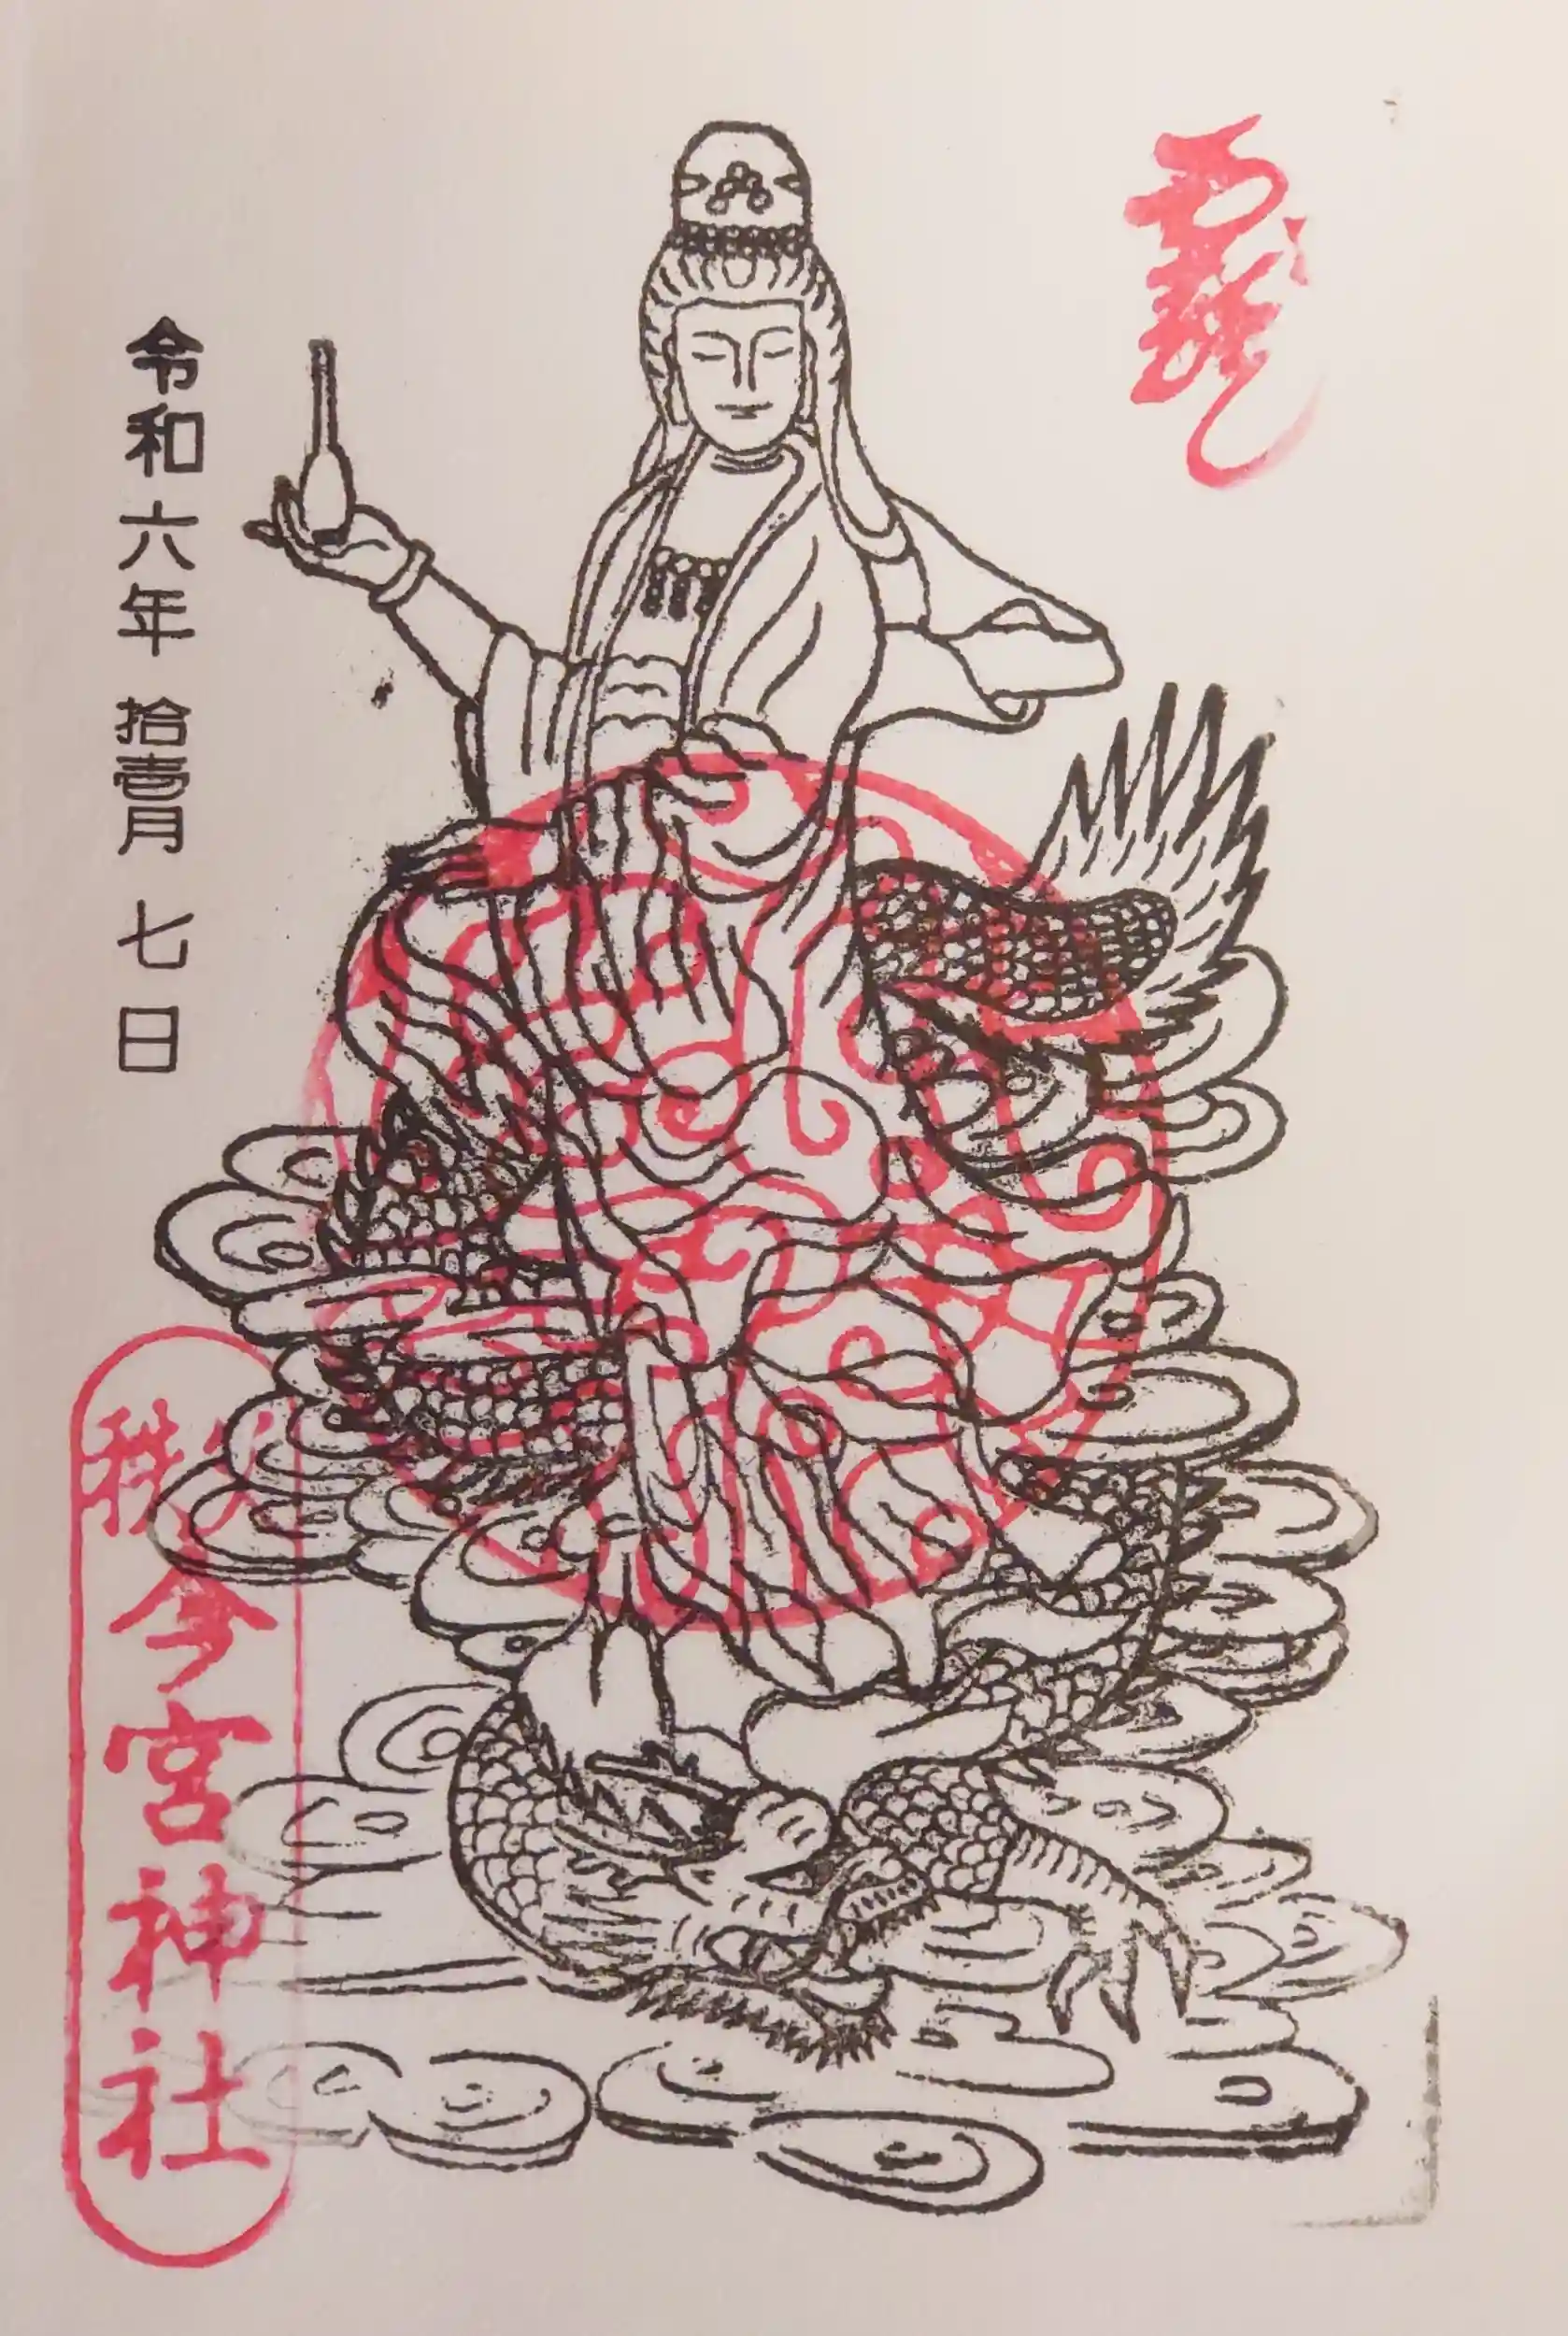 令和六年 拾壹月 七日
秩父
今宮神社